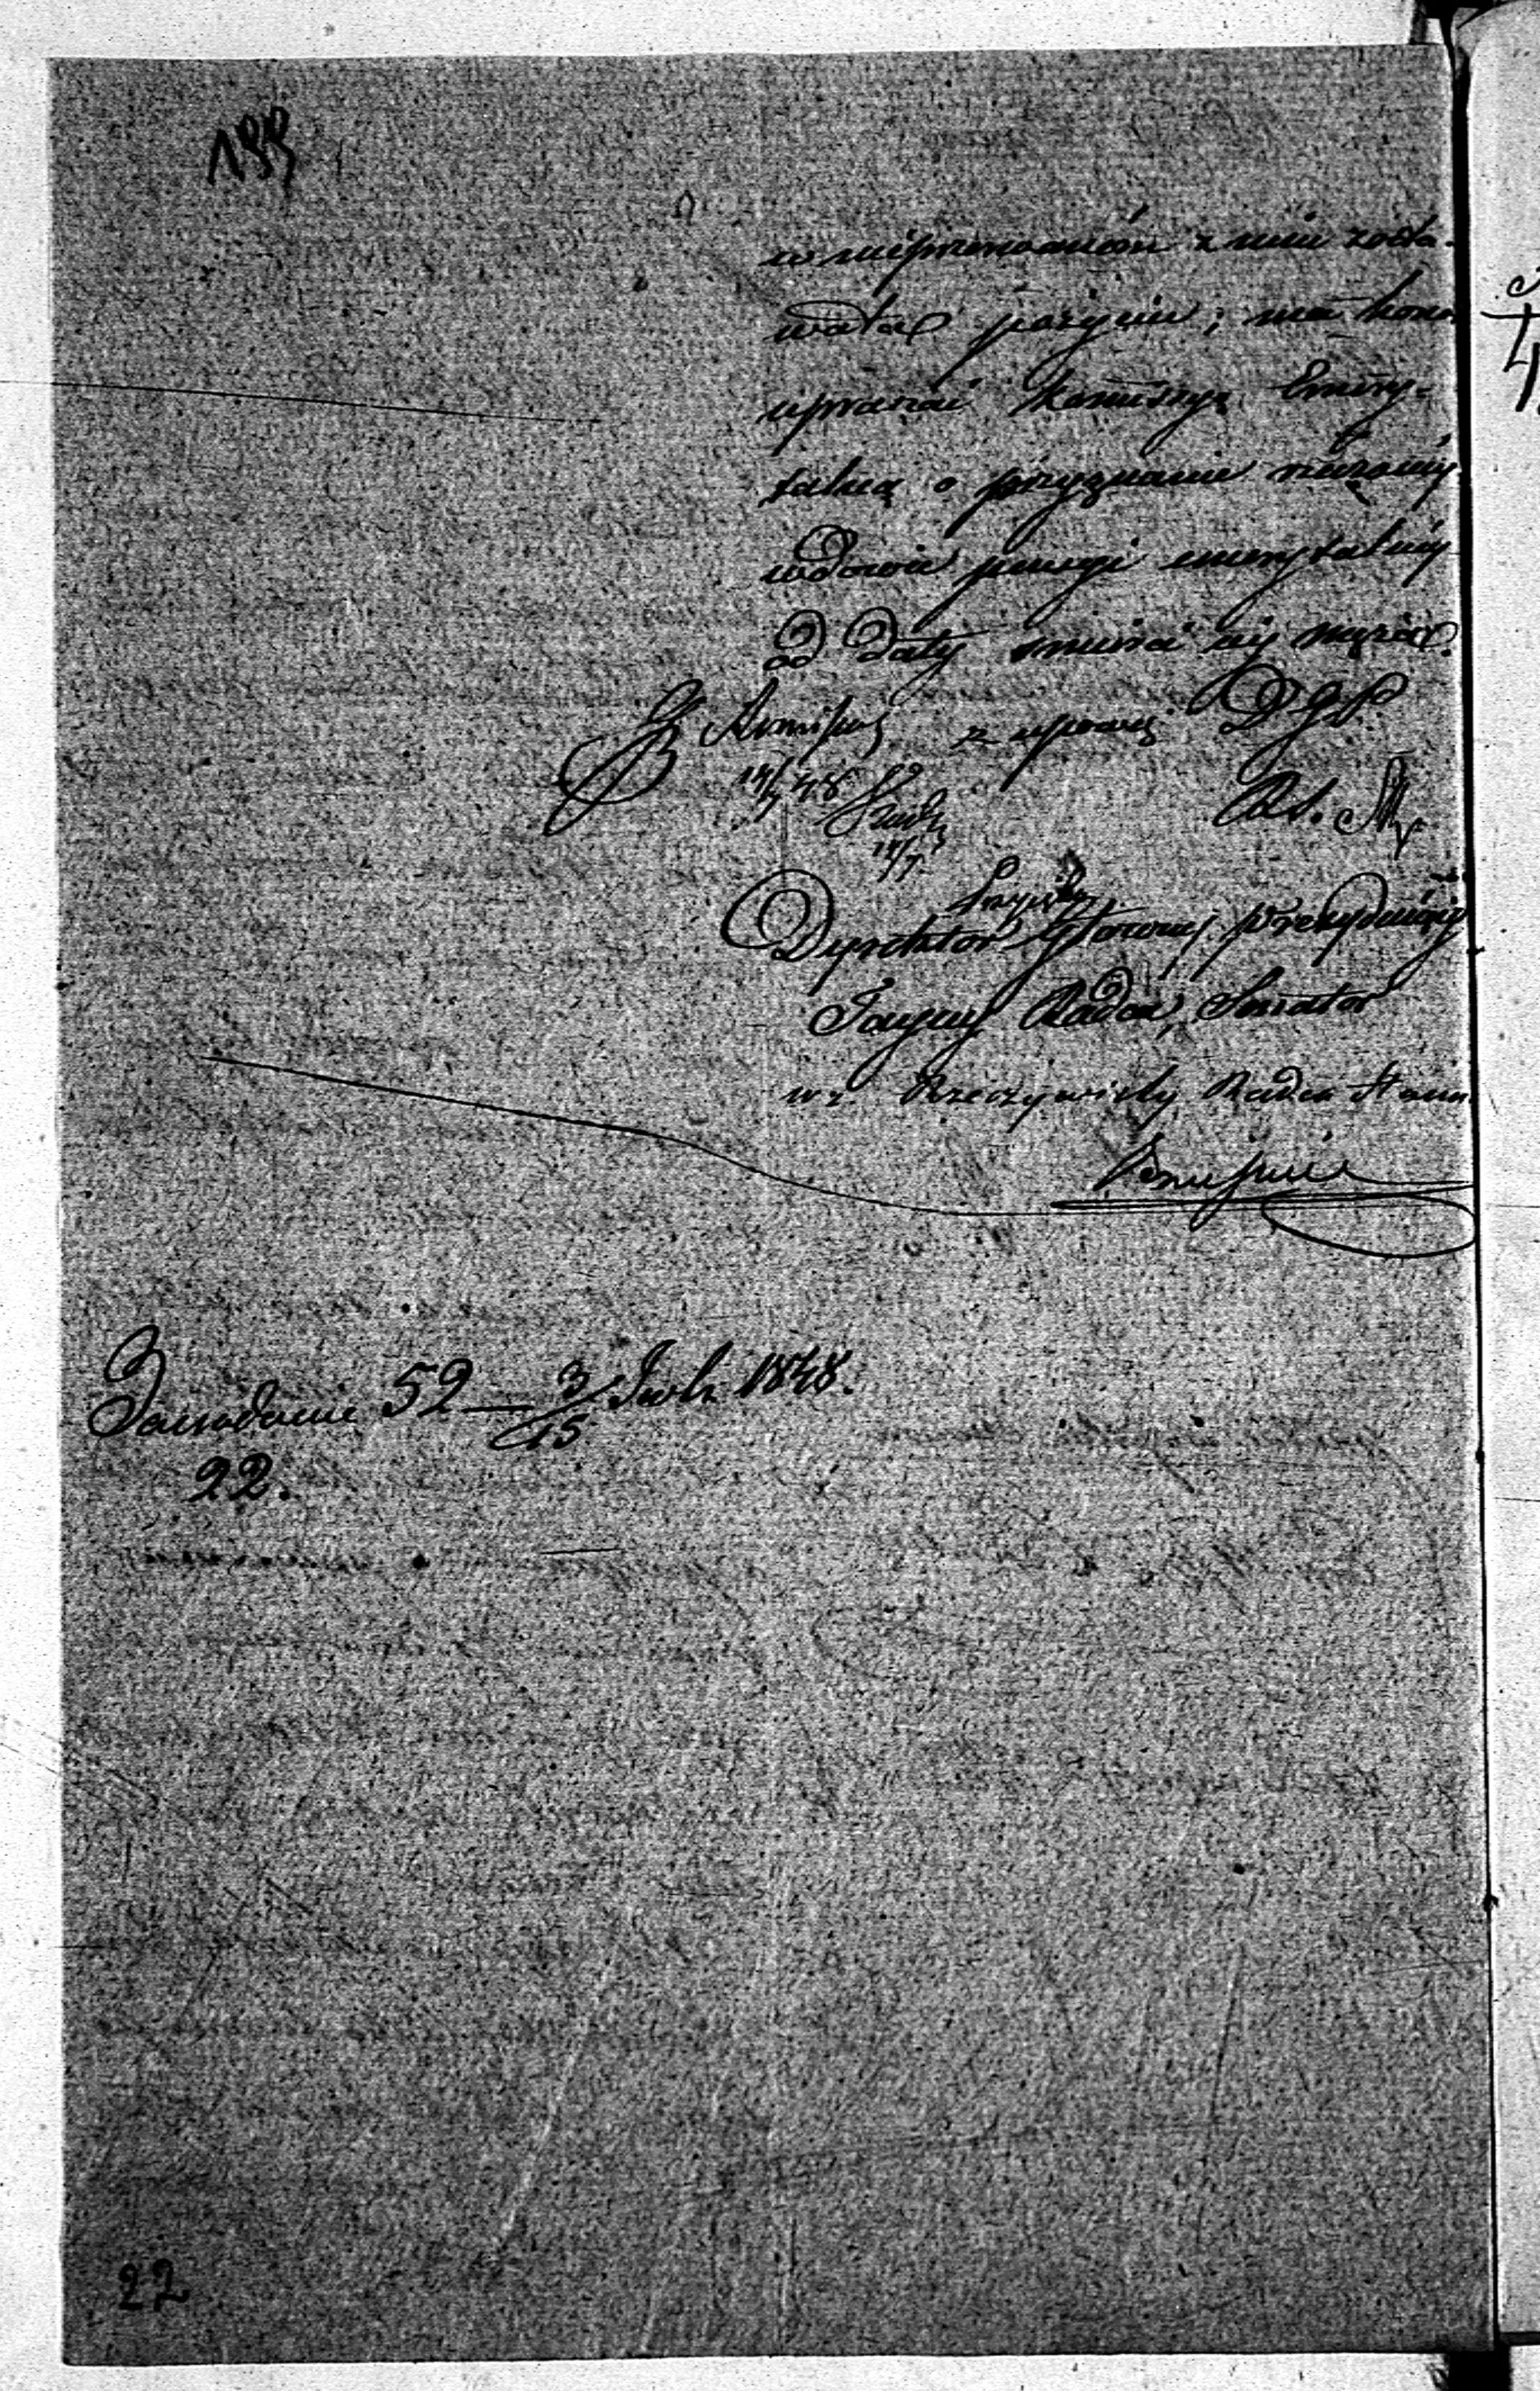 199
w nieprzerwanem z nim zosta-
wała pożyciu; ma hono
upraszać Kommissyą Emery-
talną o przyznanie rzeczonéj
wdowie pensyi emerytalnéj
od daty śmierci jéj męża.
z upow. D G P
14/7 48
14/7
Dyrektor Główny Prezydujący
Tajny Radca, Senator
wz Rzeczywisty Radca Stanu
Posiedzenie 52 — 3/15 Julii 1848.
22.
22